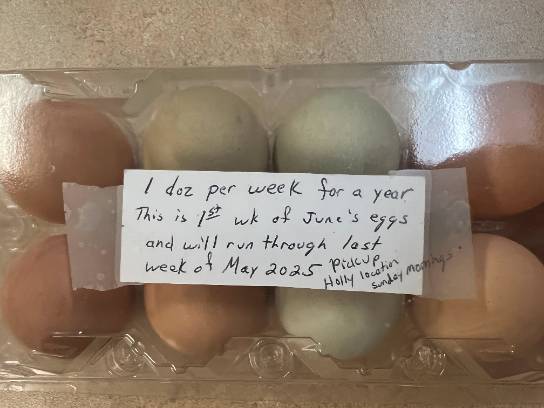 1 doz per week for a year
This is 1st wk of June's eggs
and will run through last
week of May 2025 Pickup
Holly location
sunday mornings.